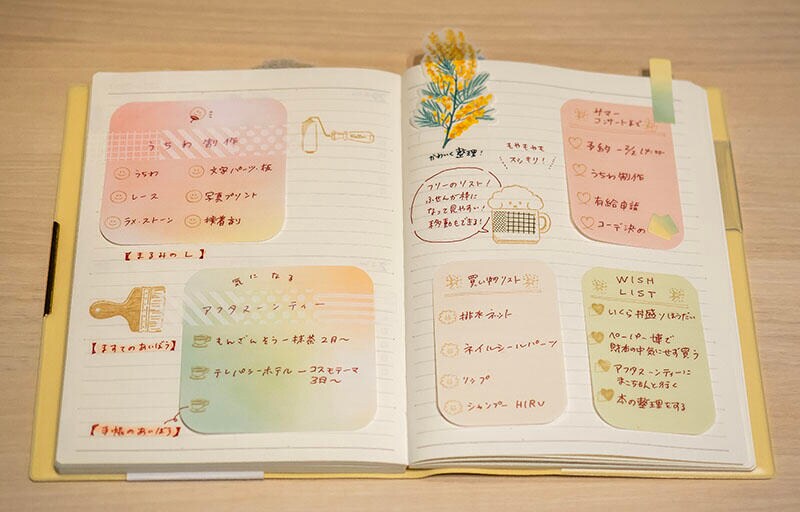 うちわ制作
うちわ
文字パーツ・板
レース
写真プリント
ラメ・ストーン
接着剤
【まるみのL】
気になる
アフタヌーンティー
もんざんそう 抹茶 2月〜
テレパシーホテル コスモテーマ
3月〜
【ますてのあいぼう】
【手帳のあいぼう】
かわいく整理!
もやもやも
スッキリ!
フリーのリスト!
ふせんが枠に
なって見やすい!
移動もできる!
サマー
コンサートまで
予約
うちわ制作
有給申請
コーデ決め
買い物リスト
排水ネット
ネイルシールパーツ
リップ
シャンプー HIRU
WISH
LIST
いくら丼盛りほうだい
ペーパー博で
財布の中気にせず買う
アフタヌーンティーに
まこちゃんと行く
本の整理をする